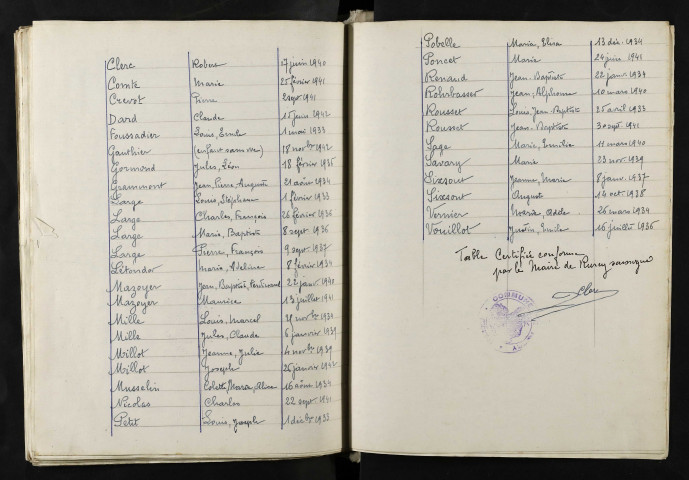 Clerc Robert 17 juin 1940
Comte Marie 25 février 1941
Crevot Pierre 2 sept 1941
Dard Claude 15 juin 1942
Foussadier Louis, Emile 1 mai 1933
Gauthier (enfant sans vie) 18 novbre 1942
Gormond Jules, Léon 18 février 1935
Grammont Jean, Pierre, Auguste 21 août 1934
Large Louis, Stéphane 1 février 1933
Large Charles, François 26 février 1936
Large Marie, Baptiste 8 sept 1936
Large Pierre, François 9 sept 1937
Létondor Marie, Adeline 8 février 1934
Mazoyer Jean, Baptiste, Ferdinand 22 janv 1940
Mazoyer Maurice 13 juillet 1941
Mille Louis, Marcel novbre
Mille Jules, Claude 6 janvier 1939
Millot Jeanne, Julie 4 novbre 1939
Millot Joseph 25 janvier 1942
Musselin Colette, Marie, Alice 16 août 1934
Nicolas Charles 22 sept 1941
Petit Louis, Joseph 1 décbre 1933
Pobelle Marie, Elisa 13 déc. 1934
Poncet Marie 24 juin 1941
Renaud Jean-Baptiste 22 janv 1934
Rohrbasser Jean, Alphonse 10 mars 1940
Rousset Louis, Jean-Baptiste 25 avril 1933
Rousset Jean-Baptiste 30 sept 1941
Sage Marie, Emilie 11 mars 1940
Savary Marie 23 nov 1939
Sixsout Jeanne, Marie 8 janv. 1937
Sixsout August 14 oct 1938
Vernier Marie, Adèle 26 mars 1934
Vouillot Justin, Emile 16 juillet 1936
Table Certifiée conforme
par le Maire de
Clerc
COMMUNE